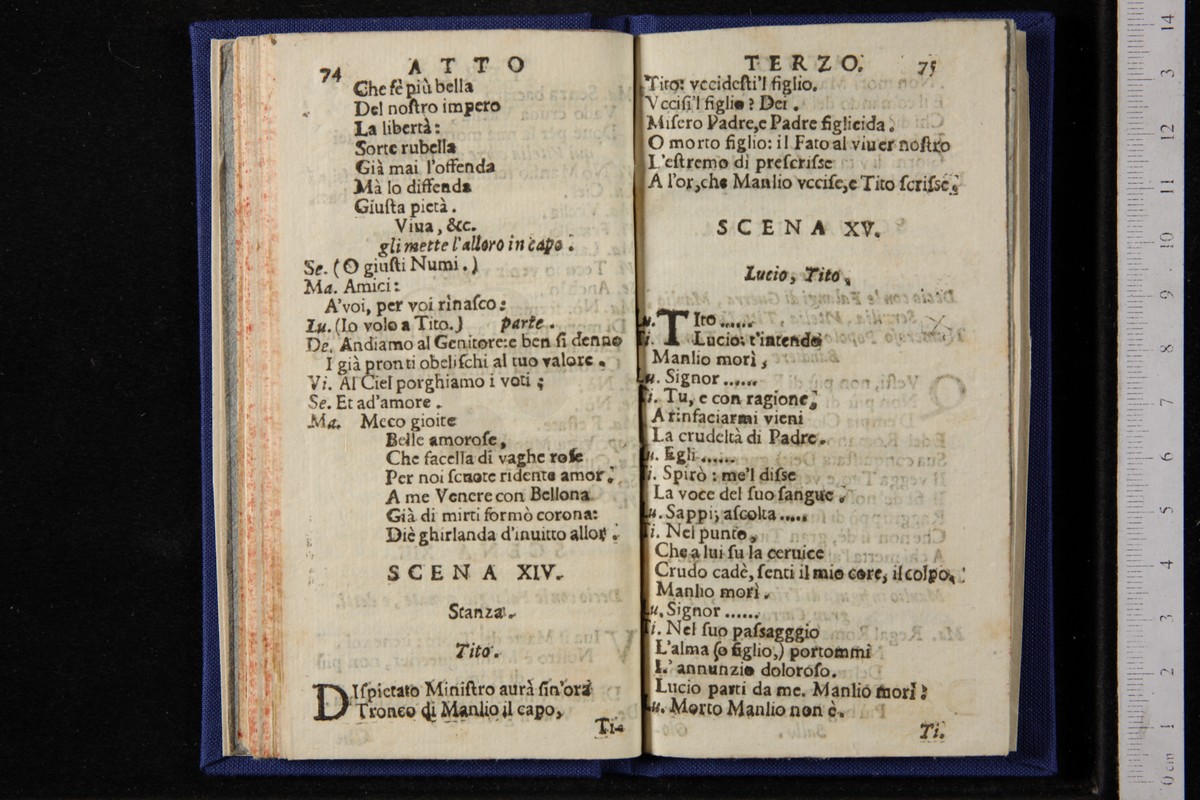 74 ATTO
Che fè più bella
Del noſtro impero
La libertà:
Sorte rubella
Già mai l'offenda
Mà lo diffenda
Giuſta pietà.
Viua, &c.
gli mette l'alloro in capo.
Se. (O giuſti Numi.)
Ma. Amici:
A'voi, per voi rinaſco:
Lu. (Io volo a Tito.) parte.
De. Andiamo al Genitore:e ben ſi denno
I già pronti obeliſchi al tuo valore.
Vi. Al Ciel porghiamo i voti;
Se. Et ad'amore.
Ma. Meco gioite
Belle amoroſe,
Che facella di vaghe roſe
Per noi ſcuote ridente amor:
A me Venere con Bellona
Già di mirti formò corona:
Diè ghirlanda d'inuitto allor.
SCENA XIV.
Stanza.
Tito.
DIſpietato Miniſtro aurà ſin'ora
Tronco di Manlio il capo,
Ti-
TERZO. 75
Tito: vccideſti'l figlio.
Vcciſi'l figlio? Dei.
Miſero Padre,e Padre figlicida.
O morto figlio: il Fato al viuer noſtro
L'eſtremo di preſcriſſe
A l'or,che Manlio vcciſe,e Tito ſcriſſe.
SCENA XV.
Lucio, Tito.
Lu. TIto......
Ti. Lucio: t'intendo
Manlio morì,
Lu. Signor......
Ti. Tu, e con ragione,
A rinfaciarmi vieni
La crudeltà di Padre.
Lu. Egli......
Ti. Spirò: me'l diſſe
La voce del ſuo ſangue.
Lu. Sappi; aſcolta.....
Ti. Nel punto,
Che a lui fu la ceruice
Crudo cadè, ſenti il mio core, il colpo.
Manlio morì.
Lu. Signor......
Ti. Nel ſuo paſſagggio
L'alma (o figlio,) portommi
L'annunzio doloroſo.
Lucio parti da me. Manlio morì?
Lu. Morto Manlio non è.
Ti.
14
13
12
11
10
9
8
7
6
5
4
3
2
1
0 cm